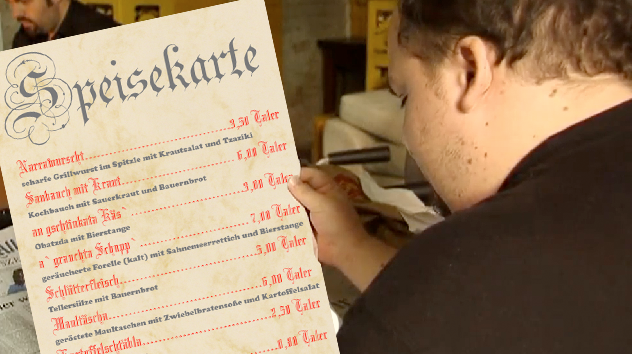 Speisekarte
Narrawurscht 3,50 Taler
scharfe Grillwurst im Spitzle mit Krautsalat und Tzaziki
Saubauch mit Kraut 6,00 Taler
Kochbauch mit Sauerkraut und Bauernbrot
an gschtinkata Käs` 3,00 Taler
Obatzda mit Bierstange
a` grauchta Schupp` 7,00 Taler
geräucherte Forelle (kalt) mit Sahnemeerrettich und Bierstange
Schlätterfleisch 5,00 Taler
Tellersülze mit Bauernbrot
Maultäscha 6,00 Taler
geröstete Maultaschen mit Zwiebelbratensoße und Kartoffelsalat
2,50 Taler
Taler